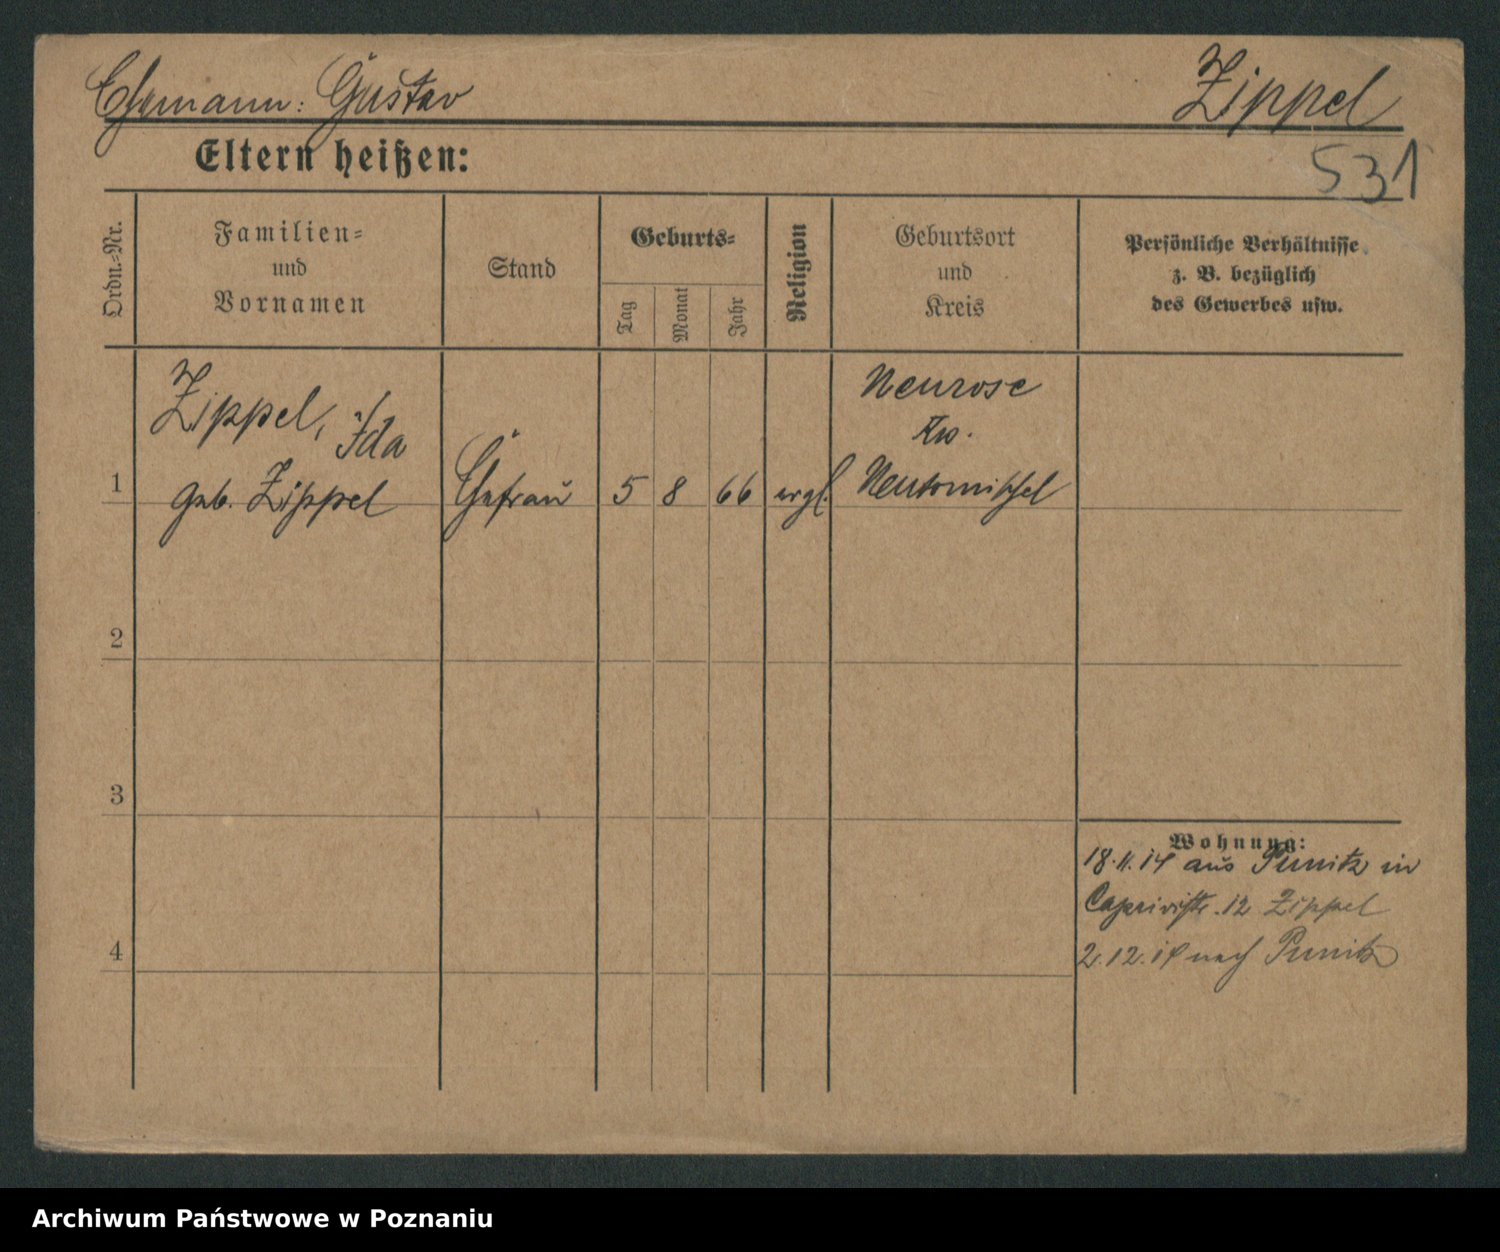 Ehemann: Gustav
Zippel
Eltern heißen:
531
Ordn.-Nr.
Familien-
und
Vornamen
Stand
Geburts-
Tag
Monat
Jahr
Religion
Geburtsort
und
Kreis
Persönliche Verhältnisse
z. B. bezüglich
des Gewerbes usw.
1
Zippel, Ida
geb. Zippel
Ehefrau
5
8
66
evgl.
Neurose
Krs.
Neutomischel
2
3
4
Wohnung:
18.11.14 aus Punitz in
Caprivistr. 12 Zippel
2.12.14 nach Punitz
Archiwum Państwowe w Poznaniu